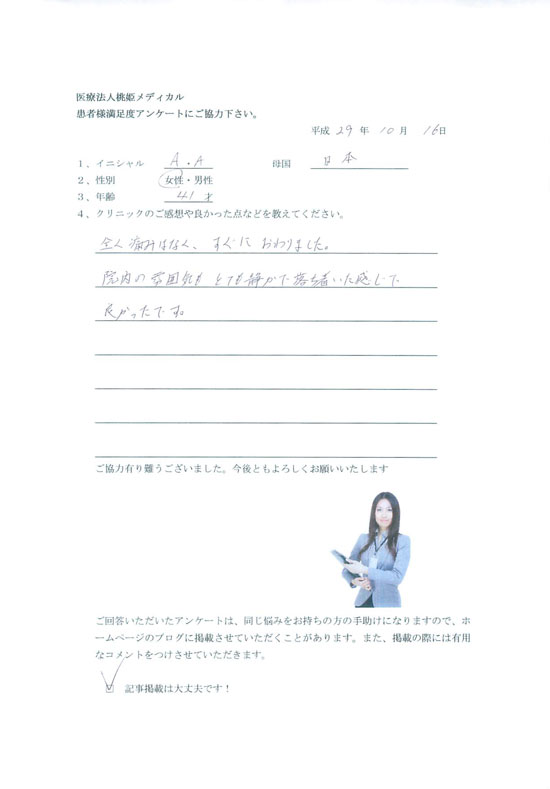 医療法人桃姫メディカル
患者様満足度アンケートにご協力下さい。
平成 29 年 10 月 16日
1、イニシャル A.A 母国 日本
2、性別 女性・男性
3、年齢 41 才
4、クリニックのご感想や良かった点などを教えてください。
全く痛みはなく、すぐに おわりました。
院内の雰囲気も とても静かで落ち着いた感じで
良かったです。
ご協力有り難うございました。今後ともよろしくお願いいたします
ご回答いただいたアンケートは、同じ悩みをお持ちの方の手助けになりますので、ホ
ームページのブログに掲載させていただくことがあります。また、掲載の際には有用
なコメントをつけさせていただきます。
記事掲載は大丈夫です！